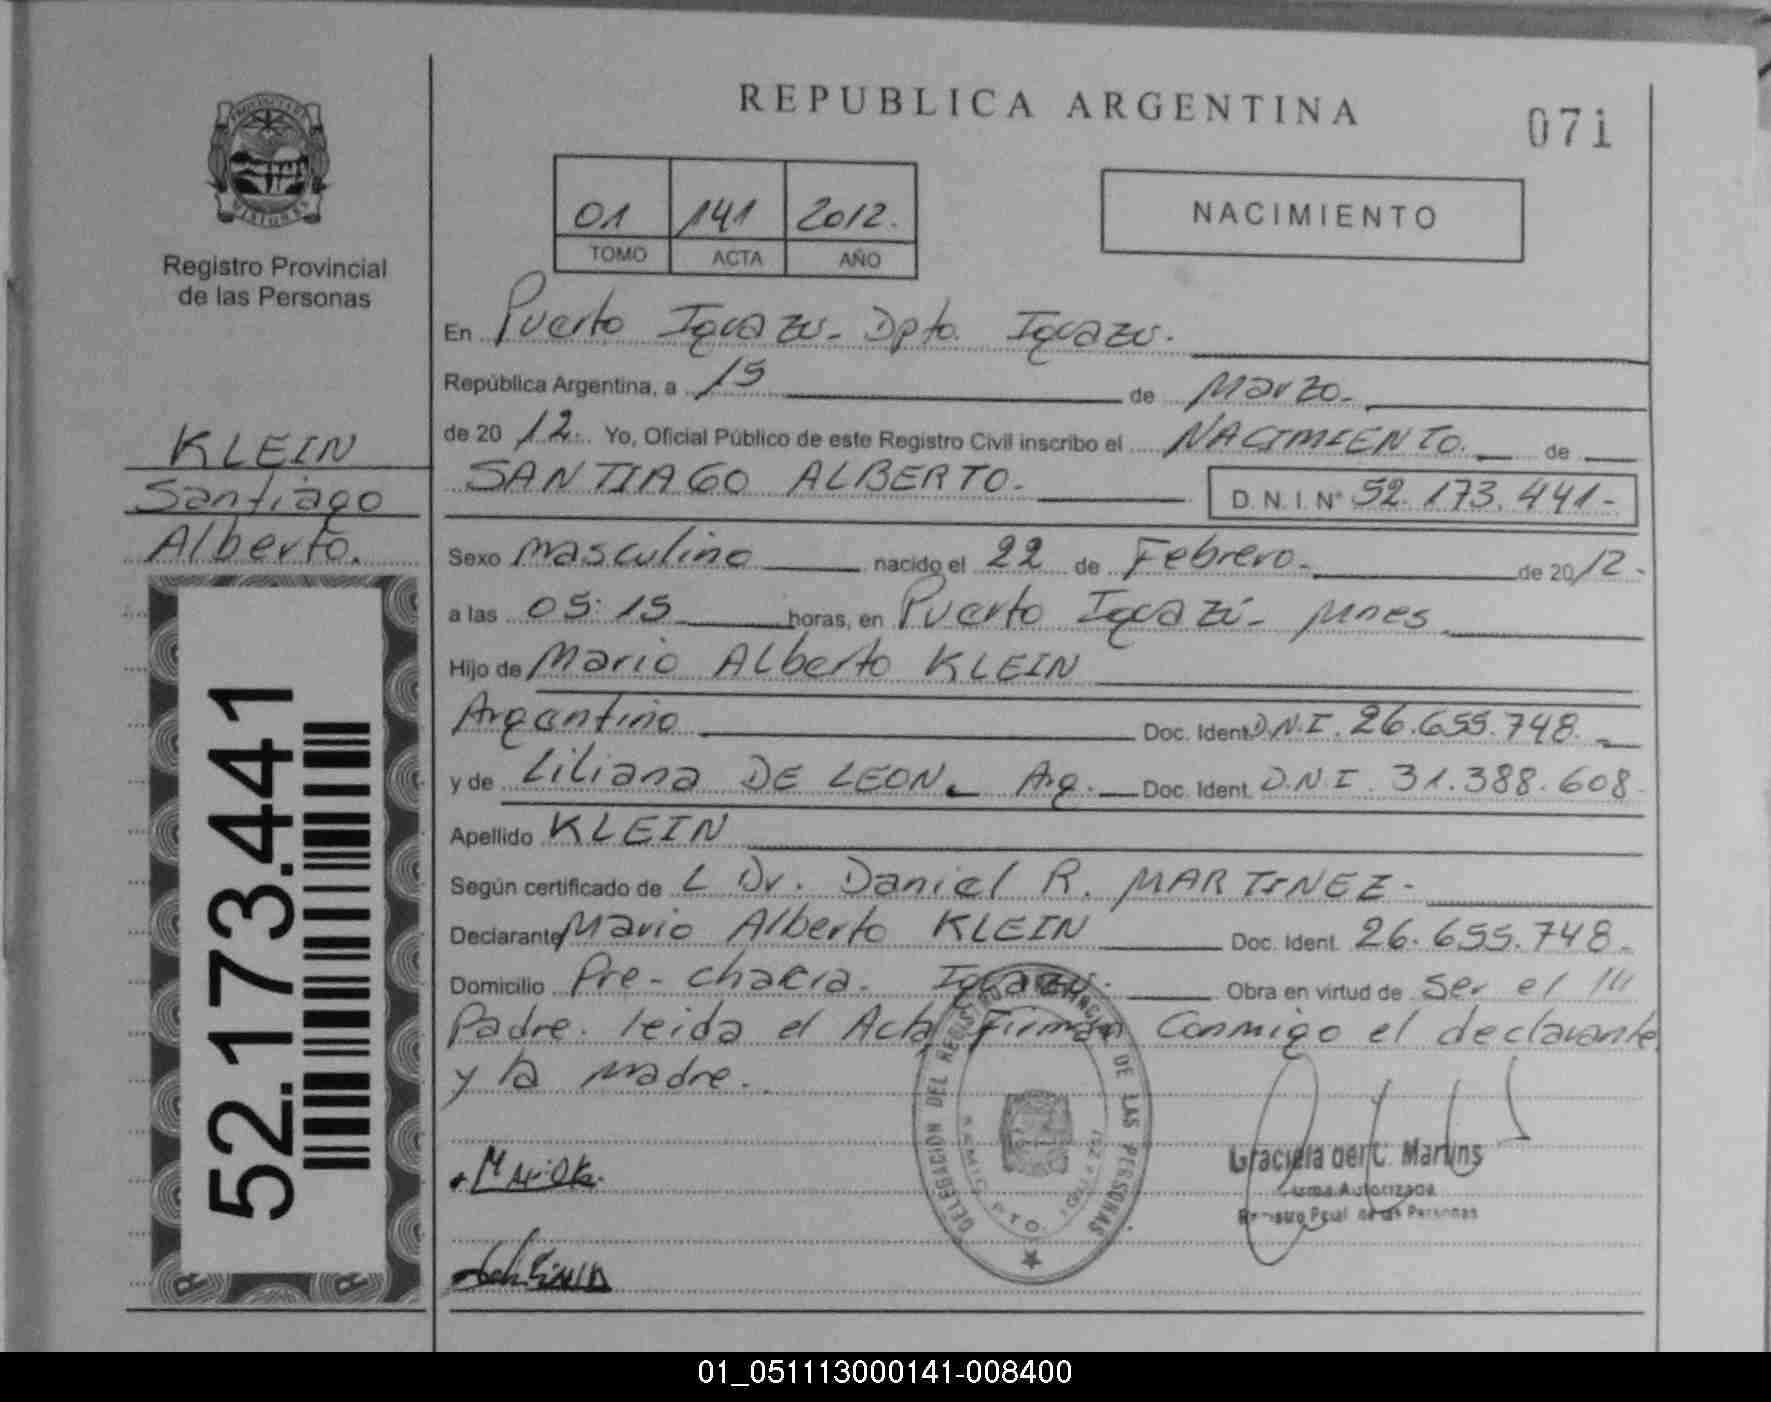 REPUBLICA ARGENTINA
071
PROVINCIA DE MISIONES
Registro Provincial
de las Personas
01 141 2012.
TOMO ACTA AÑO
NACIMIENTO
En Puerto Iguazu- Dpto. Iguazu.
República Argentina, a 15 de Marzo.
de 2012. Yo, Oficial Público de este Registro Civil inscribo el NACIMIENTO. de
SANTIAGO ALBERTO. D. N. I. N° 52.173.441-
KLEIN
Santiago
Alberto.
Sexo masculino nacido el 22 de Febrero. de 2012.
a las 05:15 horas, en Puerto Iguazú- Mnes
Hijo de Mario Alberto KLEIN
Argentino Doc. Ident. D.N.I. 26.655.748.
y de Liliana DE LEON. Arg. Doc. Ident. D.N.I. 31.388.608-
Apellido KLEIN
Según certificado de L Dr. Daniel R. MARTINEZ-
Declarante Mario Alberto KLEIN Doc. Ident. 26.655.748-
Domicilio Pre-chacra. Iguazú. Obra en virtud de Ser el
Padre. leida el Acta Firman Conmigo el declarante
y la madre.
52.173.441
DELEGACION DEL REGISTRO PROVINCIAL DE LAS PERSONAS
Graciela del C. Martins
Firma Autorizada
Registro Pcial. de las Personas
01_051113000141-008400